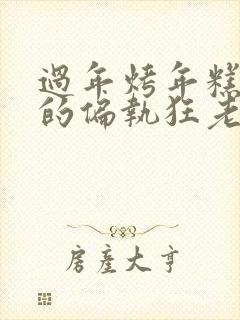 過年烤年糕
的偏執狂老
房產大亨